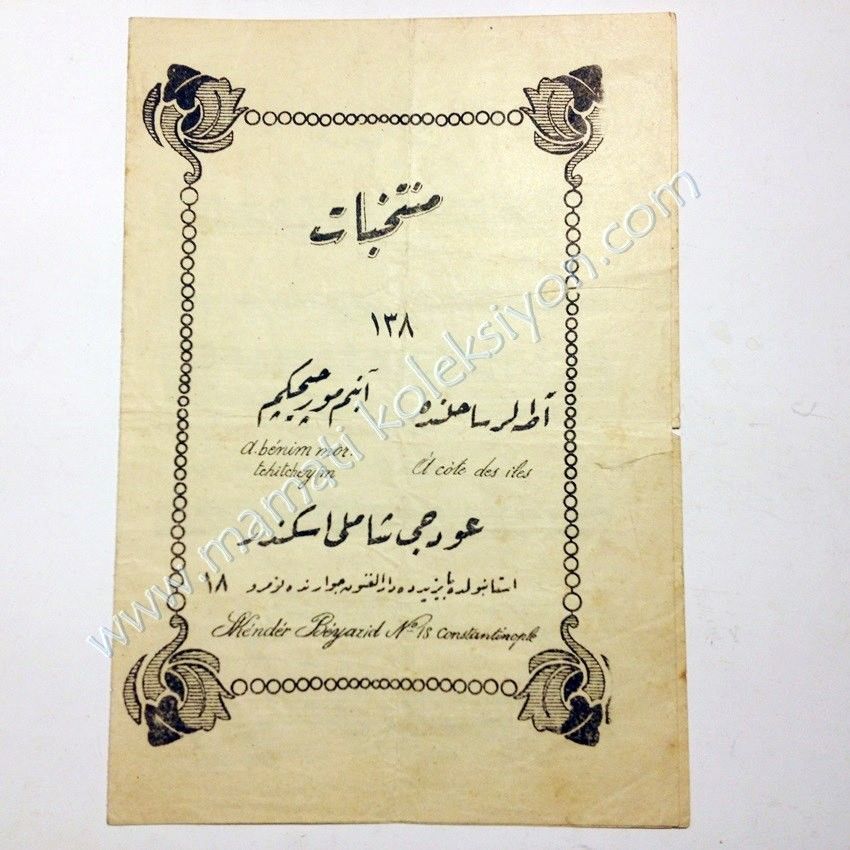 منتخبات
١٣٨
آطه لر ساحلنده
آبنم مور چيچكم
A bénim mor
tchitcheyim
A côte des iles
عودجى شاملى اسكندر
استانبولده بايزيدده دار الفنون جوارنده نومرو ١٨
Skéndér Béyazid No 18 Constantinople
www.mamati koleksiyon.com